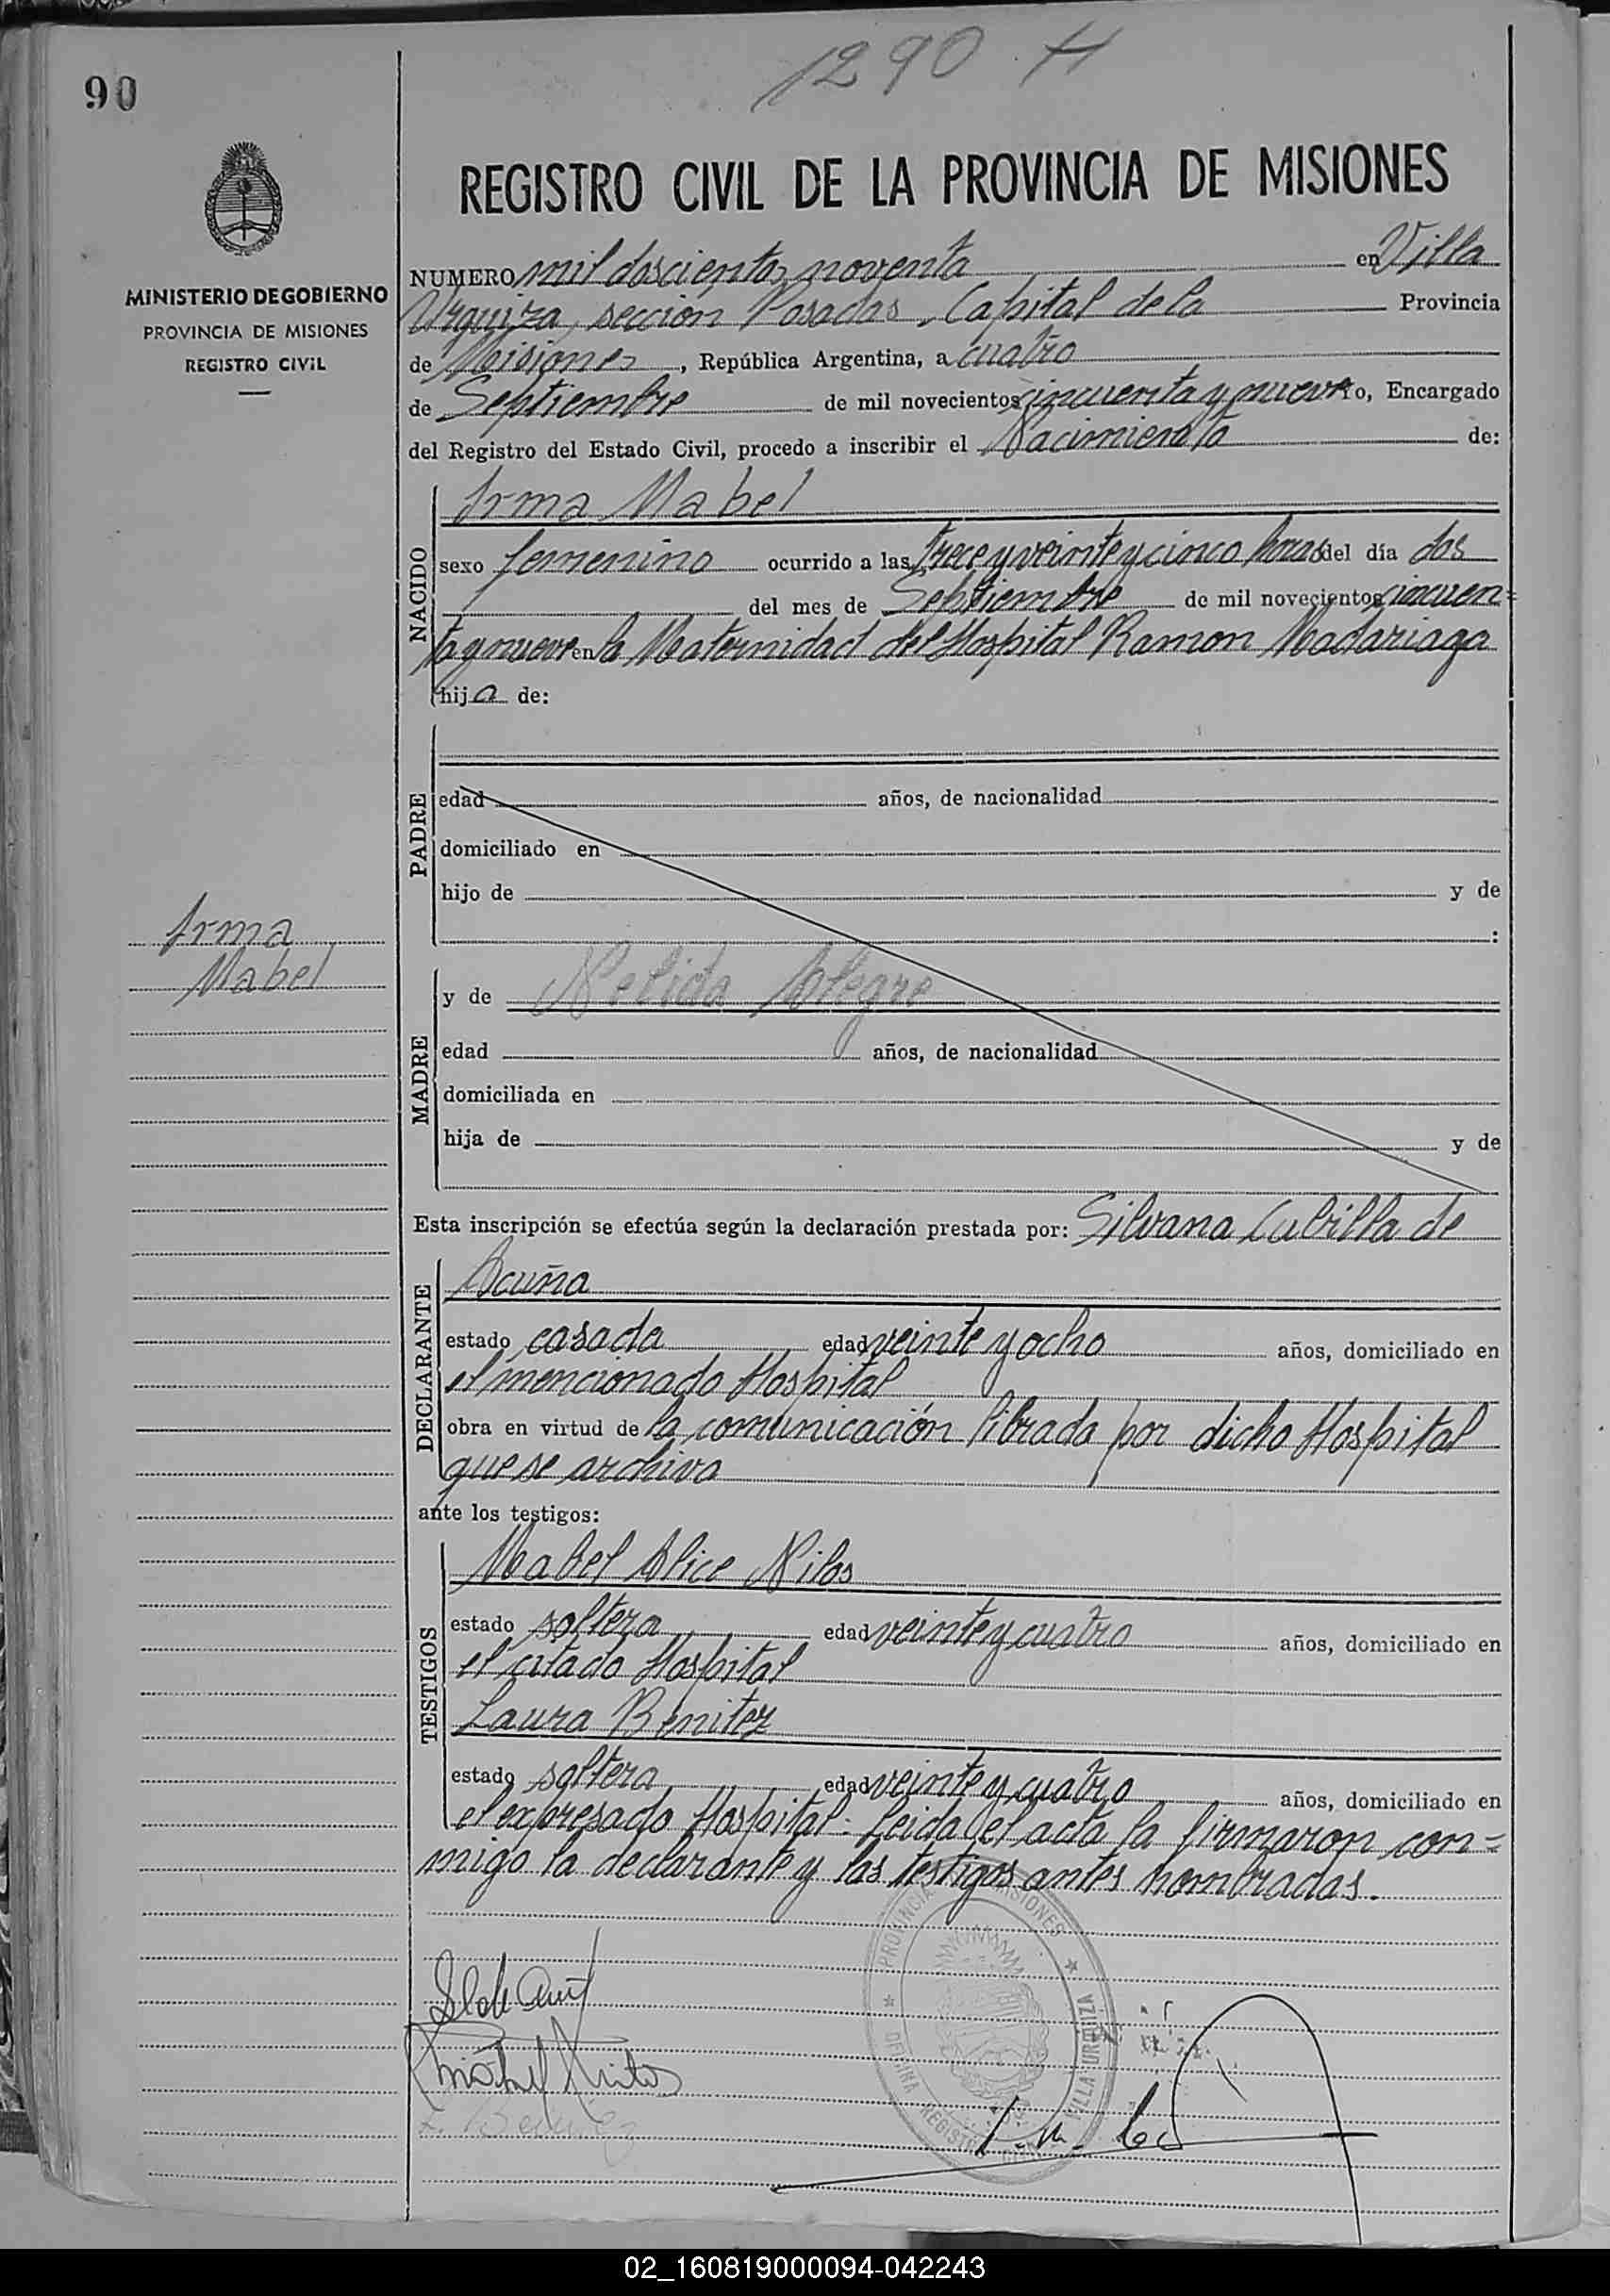 1290 H
90
REGISTRO CIVIL DE LA PROVINCIA DE MISIONES
MINISTERIO DE GOBIERNO
PROVINCIA DE MISIONES
REGISTRO CIVIL
NUMERO mil doscientos noventa en Villa
Urquiza, sección Posadas, Capital de la Provincia
de Misiones, República Argentina, a cuatro
de Septiembre de mil novecientos cincuenta y nueve yo, Encargado
del Registro del Estado Civil, procedo a inscribir el Nacimiento de:
NACIDO
Irma Mabel
sexo femenino ocurrido a las trece y veinte y cinco horas del día dos
del mes de Septiembre de mil novecientos cincuen=
ta y nueve en la Maternidad del Hospital Ramon Madariaga
hija de:
PADRE
edad años, de nacionalidad
domiciliado en
hijo de y de
:
Irma
Mabel
MADRE
y de Nelida Alegre
edad años, de nacionalidad
domiciliada en
hija de y de
Esta inscripción se efectúa según la declaración prestada por: Silvana Cubilla de
DECLARANTE
Acuña
estado casada edad veinte y ocho años, domiciliado en
el mencionado Hospital
obra en virtud de la comunicación librada por dicho Hospital
que se archiva
ante los testigos:
TESTIGOS
Mabel Alice Nilos
estado soltera edad veinte y cuatro años, domiciliado en
el citado Hospital
Laura Benitez
estado soltera edad veinte y cuatro años, domiciliado en
el expresado Hospital. Leida el acta la firmaron con=
migo la declarante y las testigos antes nombradas.
PROVINCIA DE MISIONES
VILLA URQUIZA
OFICINA REGISTRO CIVIL
L. Benitez
02_160819000094-042243